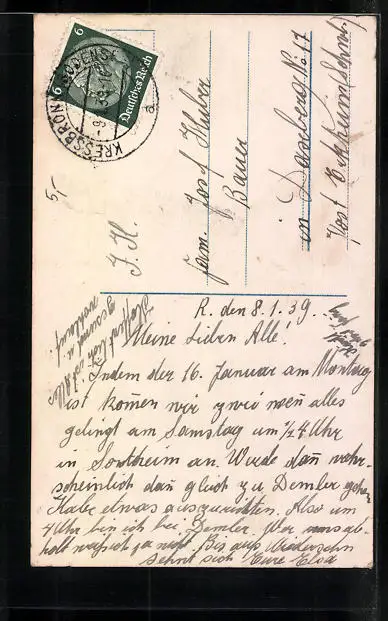 5,-
6 6
Deutsches Reich
KRESSBRONN (BODENSEE)
9.1.39
a
J. H.
Fam. Josef Huber
Bauer
in Dasberg No 17
Post
R. den 8.1.39.
Meine Lieben Alle!
Indem der 16. Januar am Montag
ist komen wir zwei wen alles
gelingt am Samstag um 1/2 4 Uhr
in Sontheim an. Wurde dan wahr-
scheinlich dan gleich zu Demler gehen
Habe etwas auszurichten. Also um
4 Uhr bin ich bei Demler. Wer uns ab-
holt weiß ich ja nicht. Bis aufs Wiedersehn
sehnt sich Eure Elsa
Hoffend seid Ihr Alle
gesund u.
wohlauf.